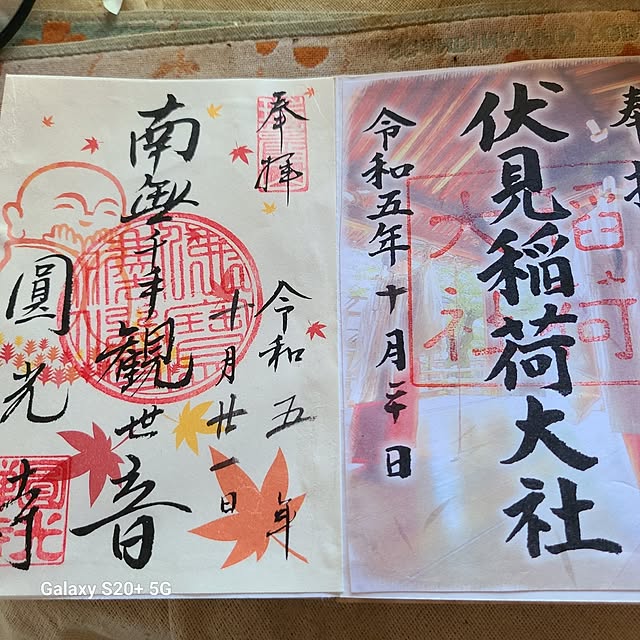 奉拝
伏見稲荷大社
稲荷
大社
令和五年十月二十日
奉拝
令和五年
十月廿一日
南無千手観世音
圓光寺
Galaxy S20+ 5G